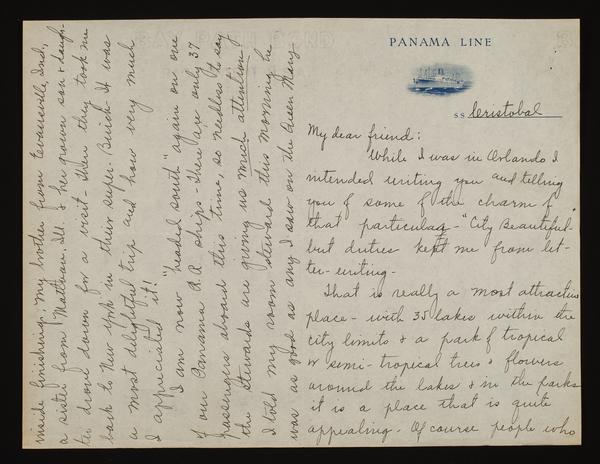 PANAMA LINE
SS Cristobal
My dear friend:
While I was in Orlando I
intended writing you and telling
you of some of the charm of
that particular - "City Beautiful"
but duties kept me from let-
ter-writing -
That is really a most attractive
place - with 35 lakes within the
city limits & a park of tropical
or semi-tropical trees & flowers
around the lakes & in the parks
it is a place that is quite
appealing - Of course people who
inside finishing. my brother from Evansville, Ind,
a sister from Mattoon, Ill. & her grown son & daugh-
ter drove down for a visit - then they took me
back to New York in their super-Buick - It was
a most delightful trip and how very much
I appreciated it!
I am now "headed south" again on one
of our Panama R.R ships - There are only 37
passengers aboard this time, so needless to say
the stewards are giving us much attention!
I told my room steward this morning he
was as good as any I saw on the Queen Mary